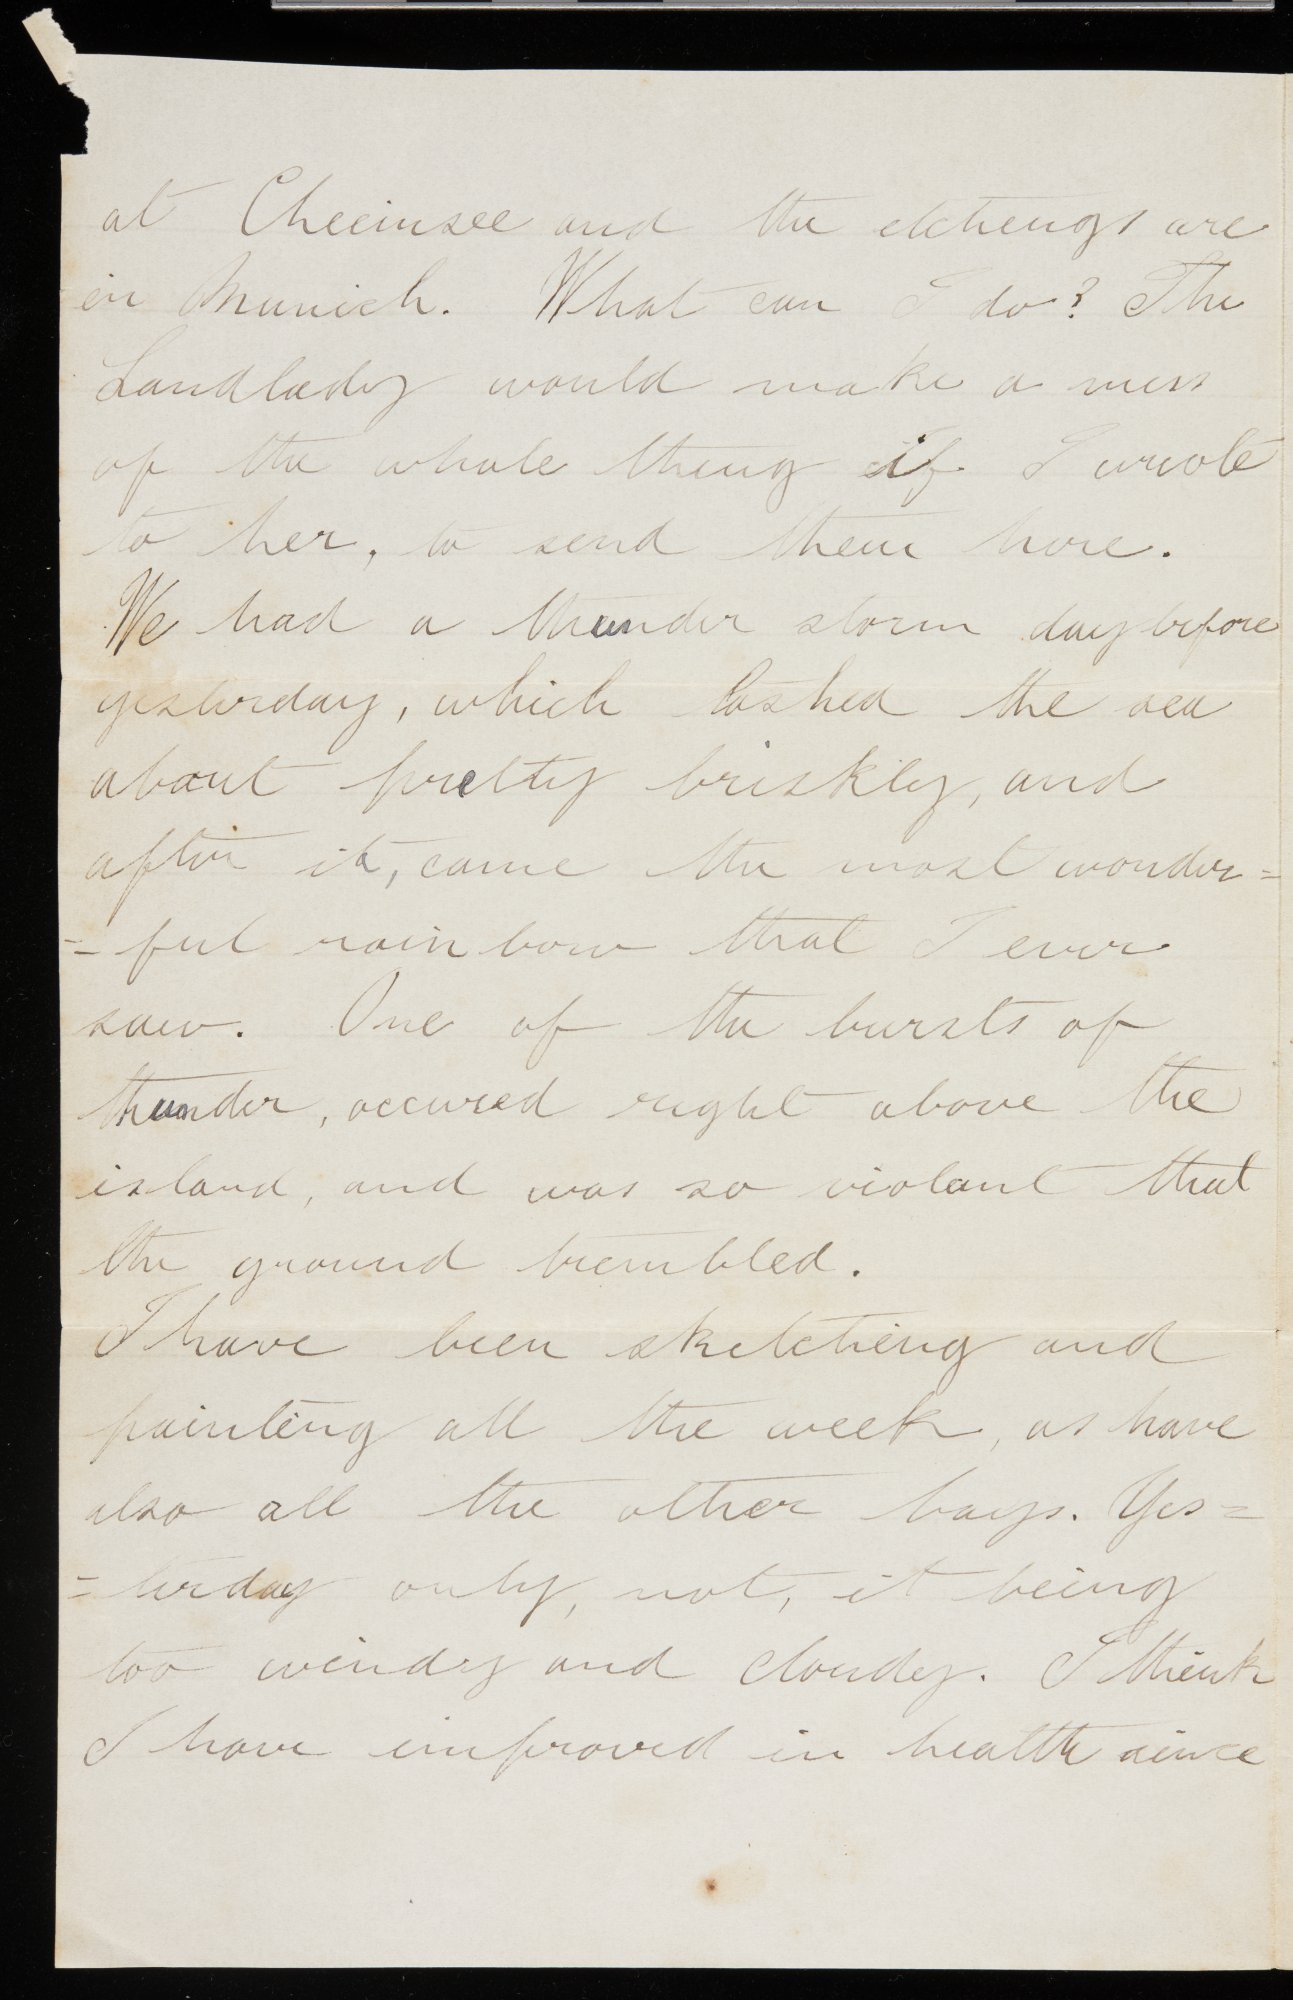 at Cheeimsee and the etchings are
in Munich. What can I do? The
Landlady would make a mess
of the whole thing if I wrote
to her, to send them here.
We had a thunder storm day before
yesterday, which lashed the sea
about pretty briskly, and
after it, came the most wonder=
=ful rainbow that I ever
saw. One of the bursts of
thunder, occured right above the
island, and was so violant that
the ground trembled.
I have been sketching and
painting all the week, as have
also all the other boys. Yes=
=terday only, not, it being
too windy and cloudy. I think
I have improved in health since